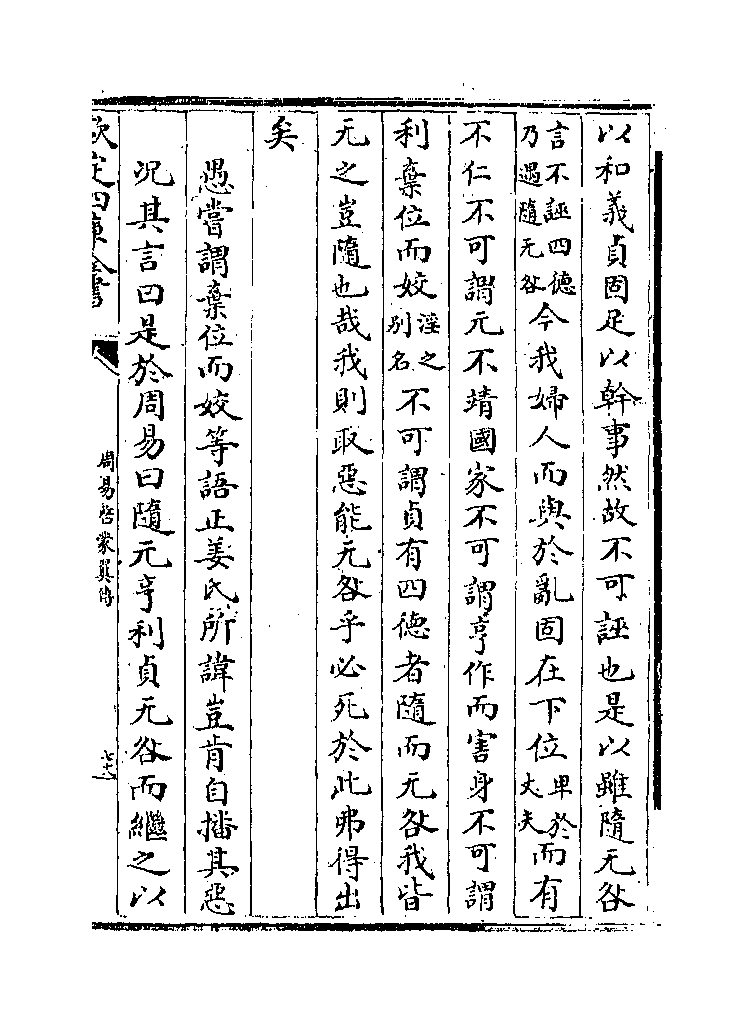 以和義貞固足以幹事然故不可誣也是以雖隨无咎
言不誣四德乃遇隨无咎今我婦人而與於亂固在下位卑於丈夫而有
不仁不可謂元不靖國家不可謂亨作而害身不可謂
利棄位而姣淫之別名不可謂貞有四德者隨而无咎我皆
无之豈隨也哉我則取惡能无咎乎必死於此弗得出
矣
愚嘗謂棄位而姣等語正姜氏所諱豈肯自播其惡
况其言曰是於周易曰隨元亨利貞无咎而繼之以
欽定四庫全書
周易啓蒙翼傳